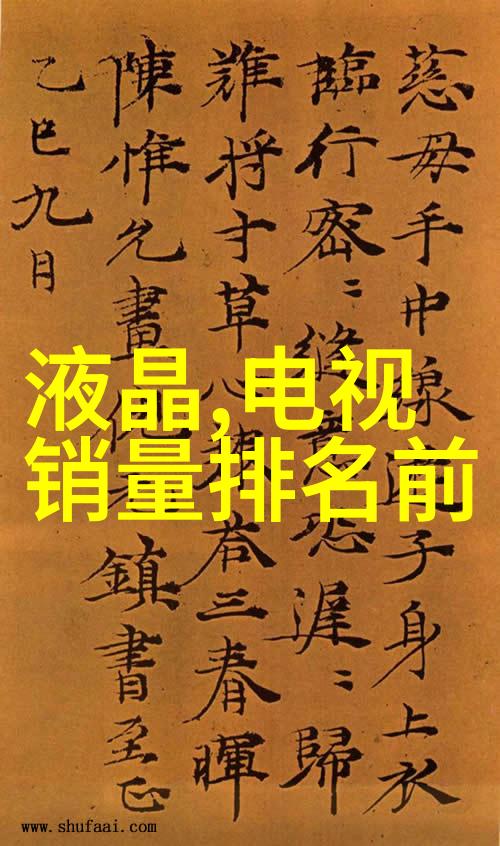 慈母手中線遊子身上衣
臨行密〻縫意恐遲〻歸
難将寸草心報荅三春暉
陳惟允畫鎮書至正
乙巳九月
液晶,电视
销量排名前
www.shufaai.com